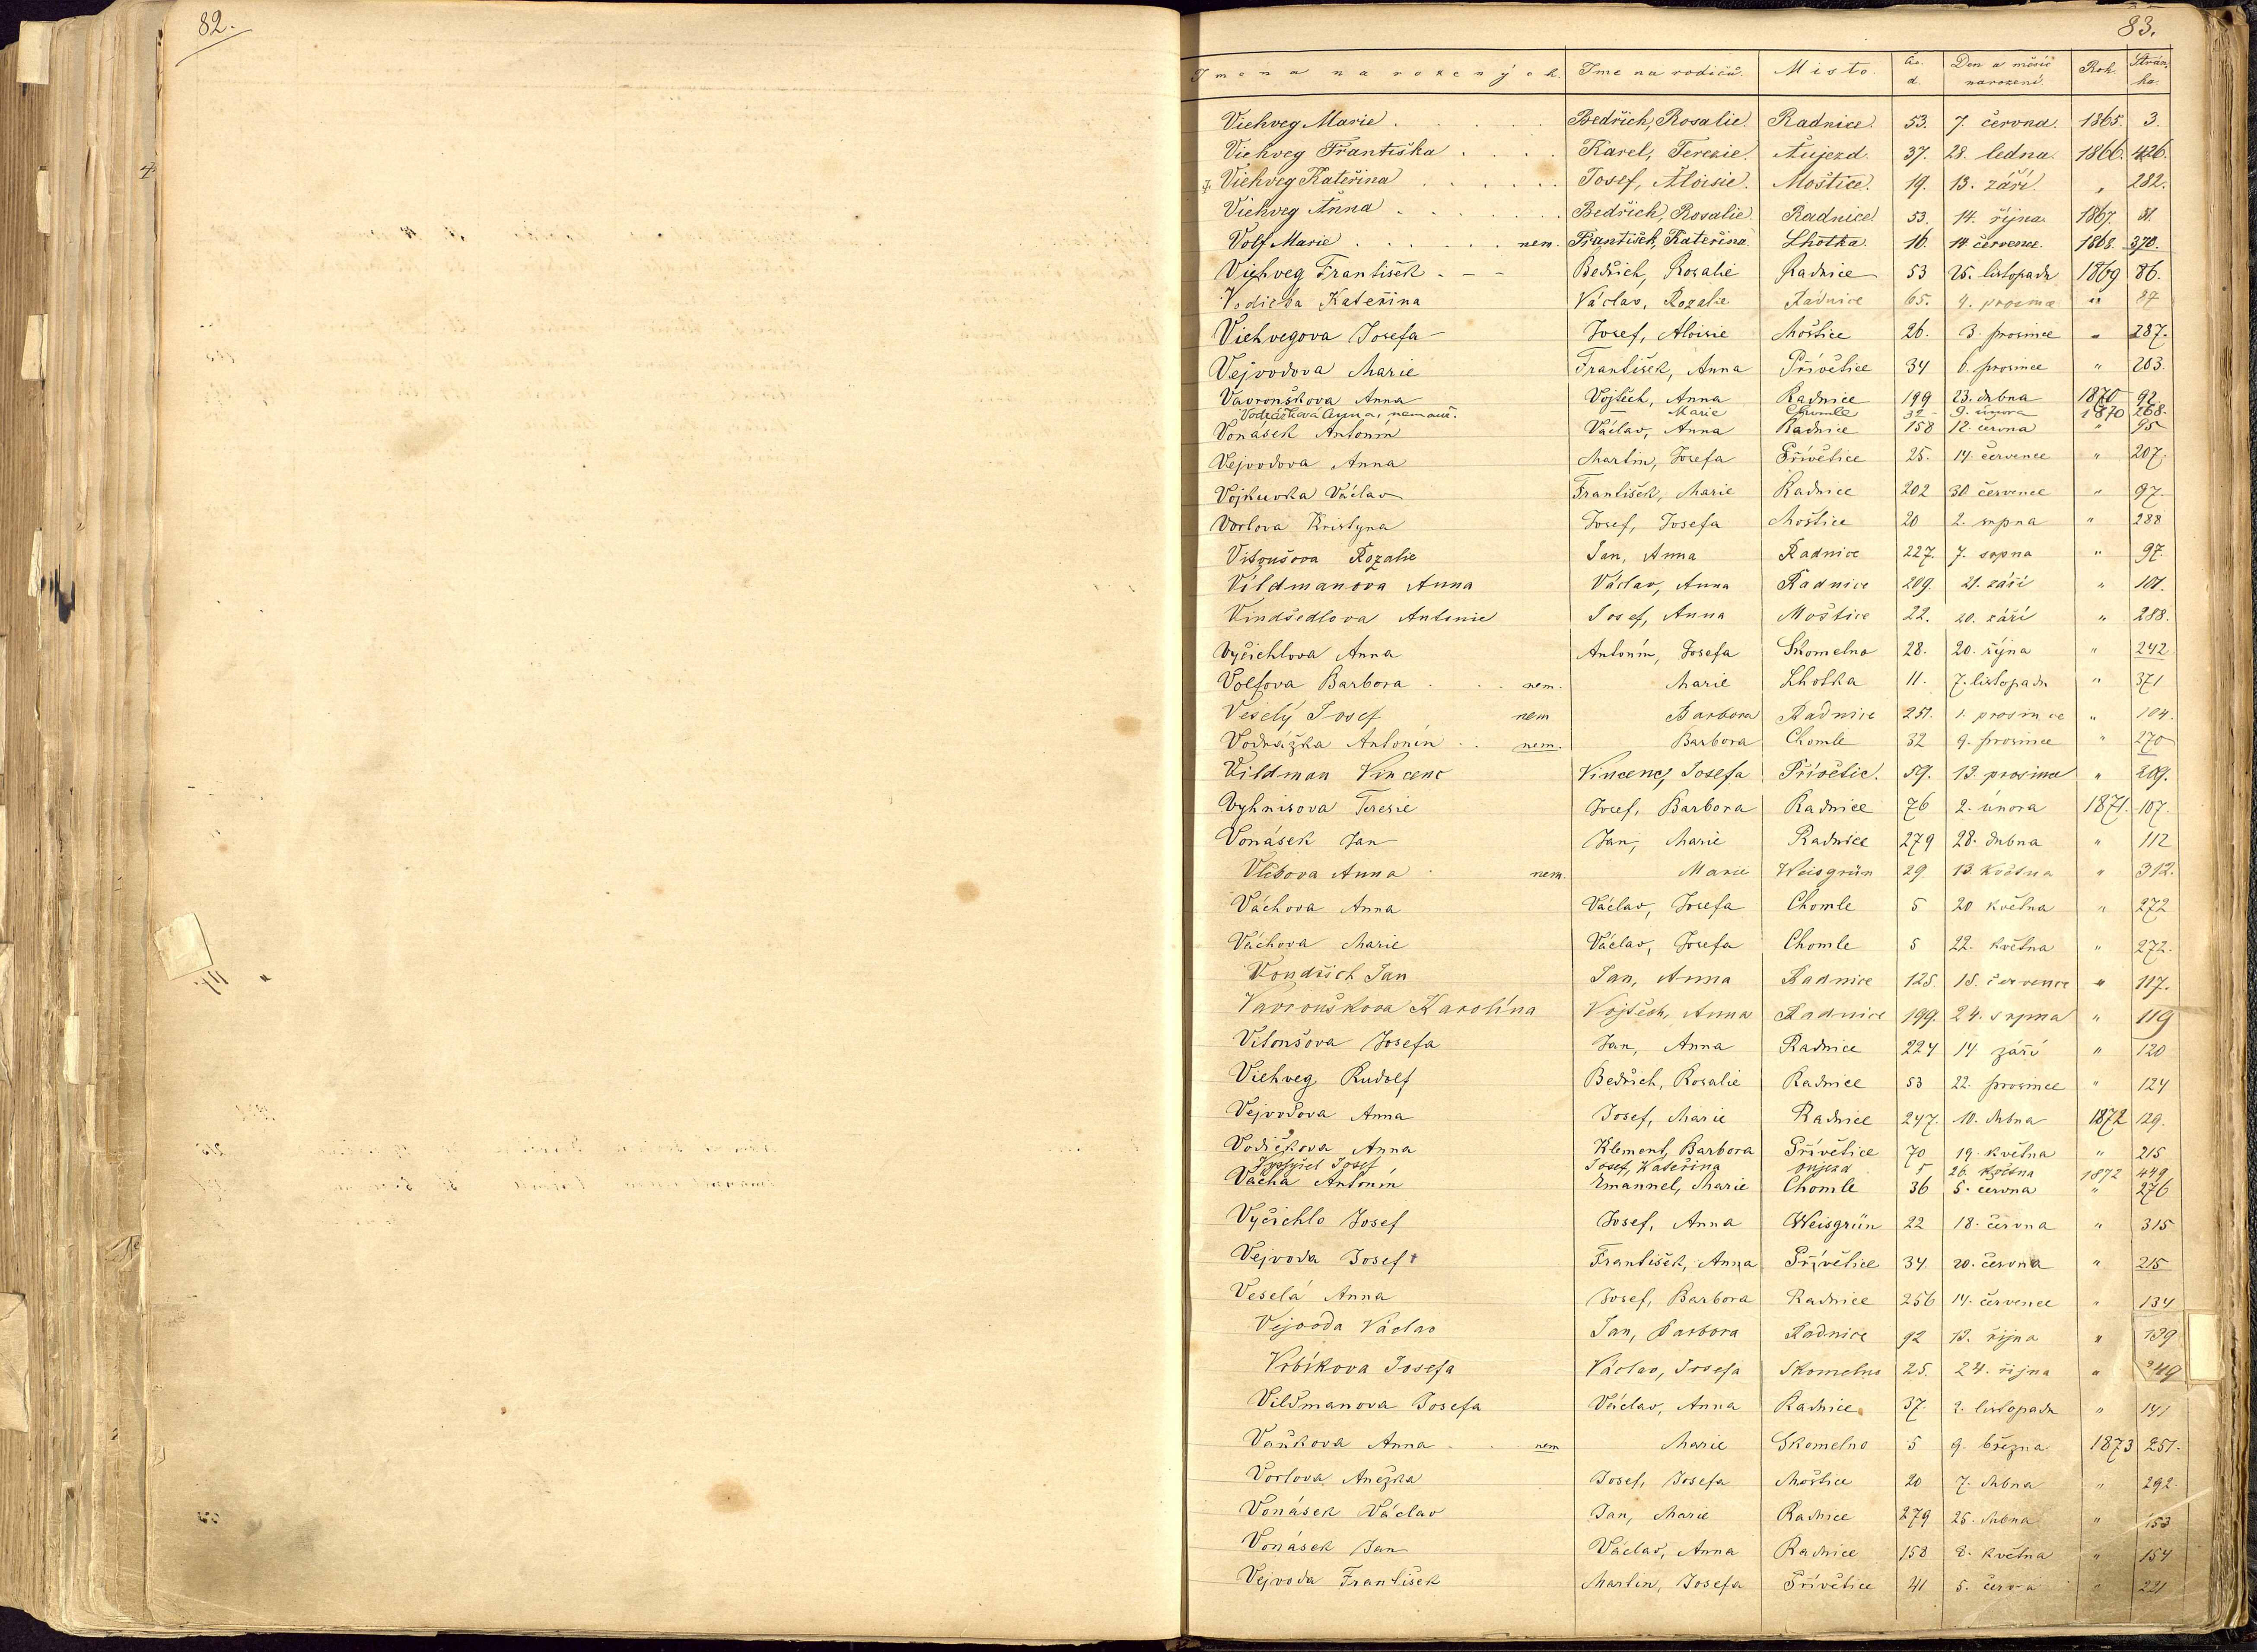 82.
83.
Jmena narozených. Jmena rodičů. Misto. Čs. d. Den a měsíc narození. Rok. Strán, ka.
Viehveg Marie . . . . . Bedřich, Rosalie. Radnice. 53. 7. června. 1865. 3.
Viehveg Františka . . . . Karel, Teresie. Aujezd. 37. 28. ledna. 1866. 426.
Viehveg Kateřina . . . . . Josef, Aloisie. Moštice. 19. 13. září. „ 282.
Viehveg Anna . . . . . Bedřich, Rosalie. Radnice. 53. 14. října. 1867. 51.
Volf Marie . . . . . nem. František, Kateřina. Lhotka. 16. 14. července. 1868. 370.
Viehveg František - - - Bedřich, Rosalie Radnice 53 25. listopadu 1869 86.
Vodička Kateřina Václav, Rozalie Radnice 65. 4. prosince „ 87
Viehvegova Josefa Josef, Aloisie Moštice 26. 3. prosince „ 287.
Vejvodova Marie František, Anna Přívětice 34 6. prosince „ 203.
Vavrouškova Anna Vojtěch, Anna Radnice 199 23. dubna 1870 92
Vodrážková Anna, nemanž. — Marie Chomle 32 - 9. února 1870 268.
Vonásek Antonín Václav, Anna Radnice 158 12. června „ 95
Vejvodova Anna Martin, Josefa Přívětice 25. 14. července „ 207.
Vojkuvka Václav František, Marie Radnice 202 30 července „ 97.
Vorlova Kristyna Josef, Josefa Moštice 20 2. srpna „ 288
Vitoušova Rozalie Jan, Anna Radnice 227. 7. srpna „ 97.
Vildmanova Anna Václav, Anna Radnice 209. 21. září „ 101.
Vindšedlova Antonie Josef, Anna Moštice 22. 20. září „ 288.
Vyčichlova Anna Antonín, Josefa Skomelno 28. 20. října „ 242
Volfova Barbora . . . nem. Marie Lhotka 11. 7. listopadu „ 371
Veselý Josef nem Barbora Radnice 251. 1. prosince „ 104.
Vodražka Antonín . . nem. Barbora Chomle 32 9. prosince „ 270
Vildman Vincenc Vincenc, Josefa Přívětic. 59. 13. prosince „ 209.
Vyhnisova Teresie Josef, Barbora Radnice 76 2. února 1871. 107.
Vonásek Jan Jan, Marie Radnice 279 28. dubna „ 112
Vlčkova Anna . nem. Marie Weisgrün 29 13. května „ 312.
Váchova Anna Václav, Josefa Chomle 5 20 května „ 272
Váchova Marie Václav, Josefa Chomle 5 22. května „ 272.
Vondřich Jan Jan, Anna Radnice 125. 15. července „ 117.
Vavrouškova Karolína Vojtěch, Anna Radnice 199. 24. srpna „ 119
Vitoušova Josefa Jan, Anna Radnice 224 14 září „ 120
Viehveg Rudolf Bedřich, Rosalie Radnice 53 22. prosince „ 124
Vejvodova Anna Josef, Marie Radnice 247. 10. dubna 1872 129.
Vodičkova Anna Klement, Barbora Přívětice 70 19. května „ 215
Josef Josef, Kateřina oujezd 5 26. května 1872 449
Vácha Antonín Emanuel, Marie Chomle 36 5. června „ 276
Vyčichlo Josef Josef, Anna Weisgrün 22 18. června „ 315
Vejvoda Josef František, Anna Přívětice 34 20. června „ 215
Veselá Anna Josef, Barbora Radnice 256 14. července „ 134
Vejvoda Václav Jan, Barbora Radnice 92 13. října „ 139
Vrbíkova Josefa Václav, Josefa Skomelno 25. 24. října „ 249
Vildmanova Josefa Václav, Anna Radnice 37. 2. listopadu „ 141
Vaňkova Anna . . nem Marie Skomelno 5 9. března 1873 251.
Vorlova Anežka Josef, Josefa Moštice 20 7. dubna „ 292.
Vonásek Václav Jan, Marie Radnice 279 25. dubna „ 153
Vonásek Jan Václav, Anna Radnice 158 8. května „ 154
Vejvoda František Martin, Josefa Přívětice 41 5. června „ 221